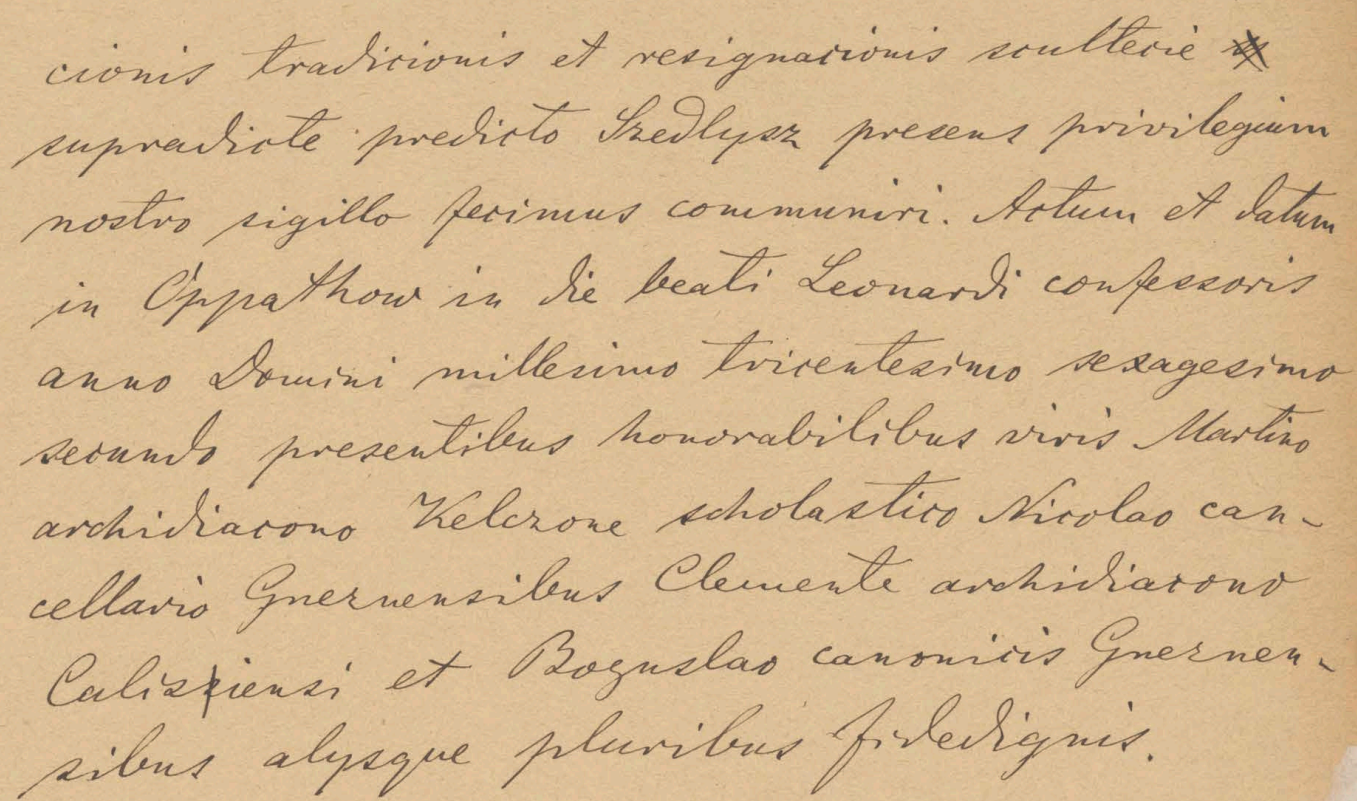 cionis tradicionis et resignacionis scultecie
supradicte predicto Szedlysz presens privilegium
nostro sigillo fecimus communiri. Actum et datum
in Oppathow in die beati Leonardi confessoris
anno Domini millesimo tricentesimo sexagesimo
secundo presentibus honorabilibus viris Martino
archidiacono Kelczone scholastico Nicolao can-
cellario Gneznensibus Clemente archidiacono
Calisiensi et Boguslao canonicis Gneznen-
sibus alysque pluribus fidedignis.